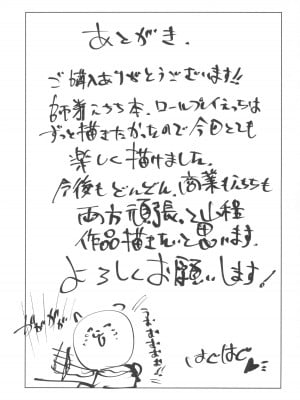 あとがき.
ご購入ありがとうございます!!
師弟えっち本、ロールプレイえっちは
ずっと描きたかったので今回とても
楽しく描けました。
今後もどんどん、商業もえちも
両方頑張って山程
作品描きたいと思います。
よろしくお願いします!
はむはむ